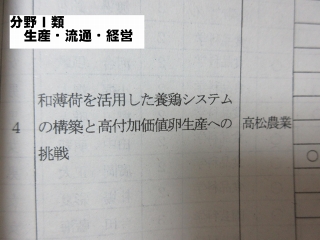 分野Ⅰ類
生産・流通・経営
和薄荷を活用した養鶏システム
4 の構築と高付加価値卵生産への 高松農業
挑戦
○